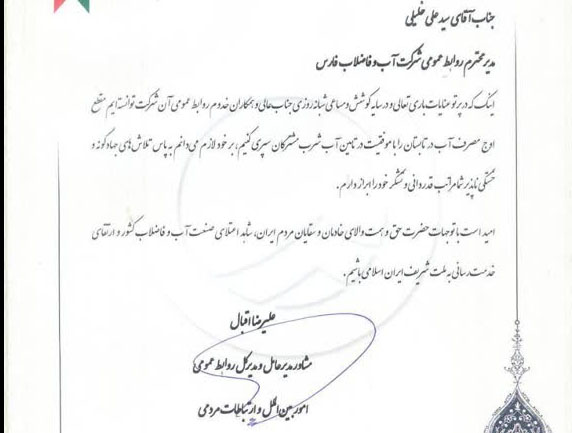 جناب آقای سید علی خلیلی
مدیر محترم روابط عمومی شرکت آب و فاضلاب فارس
اینک که در پرتو عنایات باری تعالی و در سایه کوشش و مساعی شبانه روزی جناب عالی و همکاران خدوم روابط عمومی آن شرکت توانسته ایم مقطع
اوج مصرف آب در تابستان را با موفقیت در تامین آب شرب مشترکان سپری کنیم، بر خود لازم می دانم به پاس تلاش های جهادگونه و
خستگی ناپذیر شما مراتب قدردانی و تشکر خود را ابراز دارم.
امید است با توجهات حضرت حق و همت والای خادمان و سقایان مردم ایران، شاهد اعتلای صنعت آب و فاضلاب کشور و ارتقای
خدمت رسانی به ملت شریف ایران اسلامی باشیم.
علیرضا اقبال
مشاور مدیرعامل و مدیرکل روابط عمومی
امور بین الملل و ارتباطات مردمی